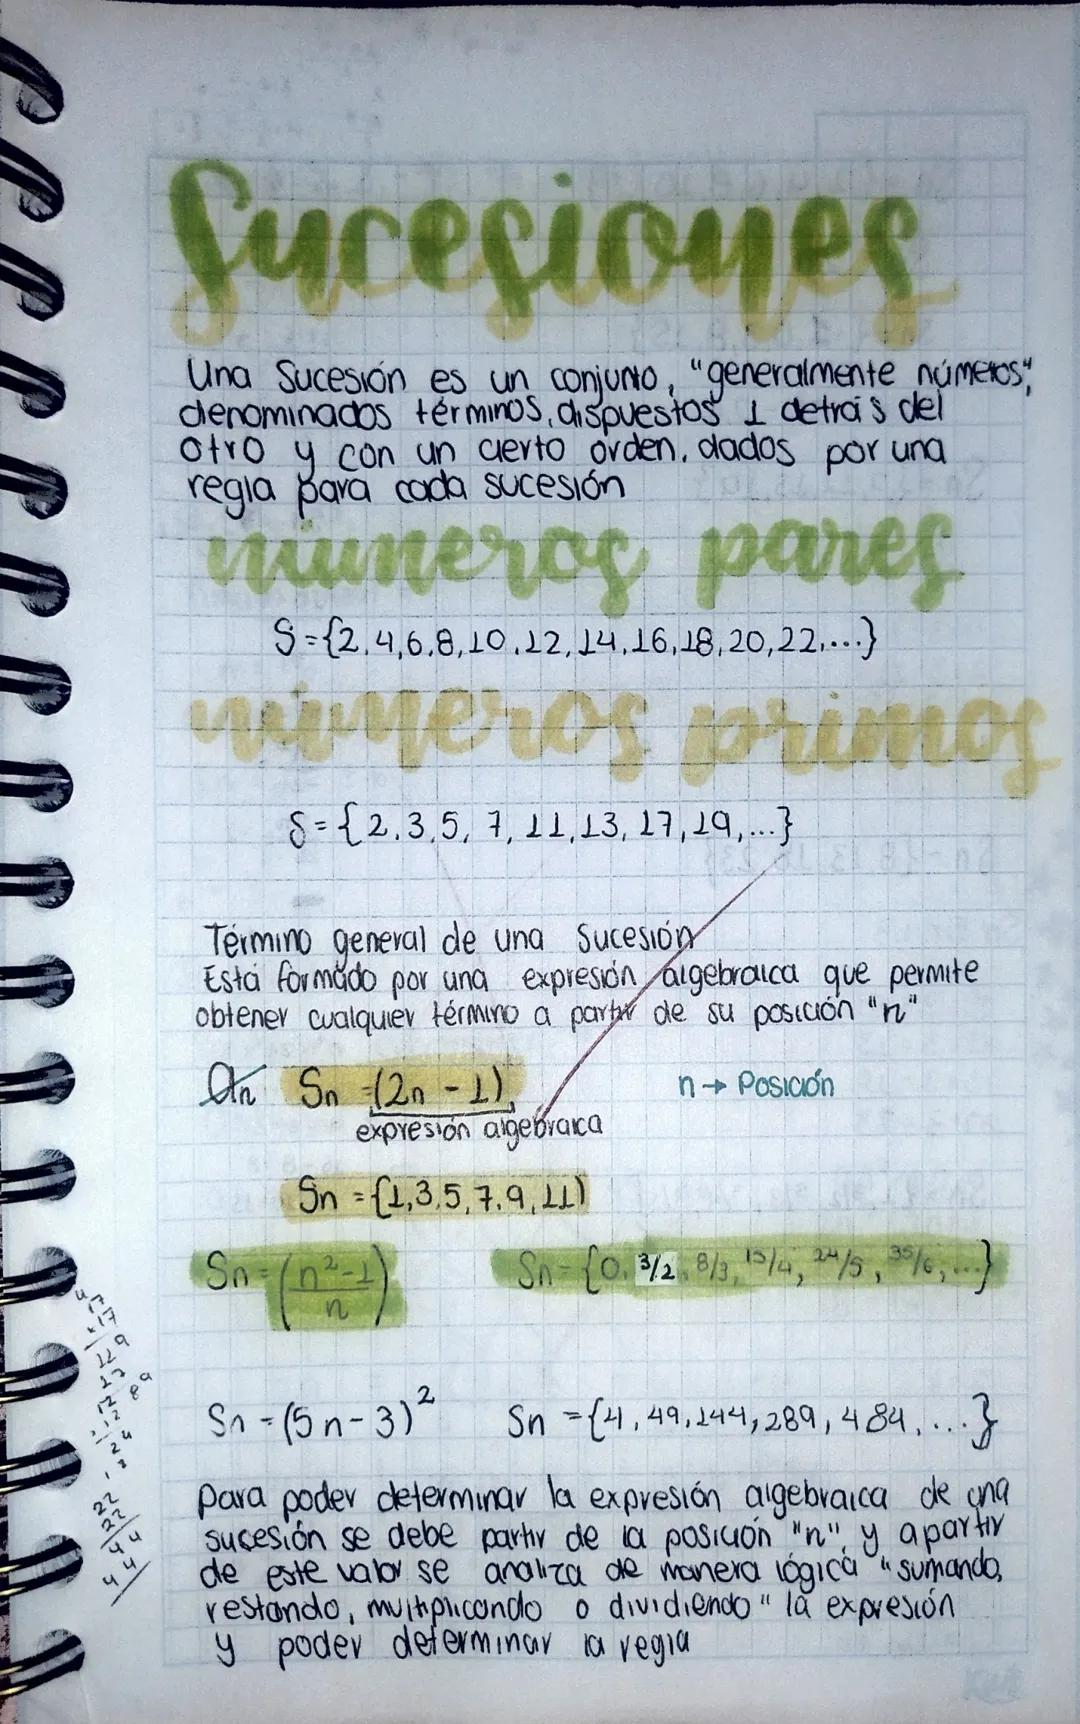 Sucesiones
Una Sucesión es un conjunto, "generalmente números",
denominados términos, dispuestos 1 detrás del
otro y con un cierto orden, dados por una
regla para cada sucesión
números pares
S={2,4,6,8,10,12,14,16,18,20,22,...}
números primos
S={2,3,5,7,11,13,17,19,...}
Término general de una Sucesión
Está formado por una expresión algebraica que permite
obtener cualquier término a partir de su posición "n"
an Sn =(2n - 1) n→ Posición
expresión algebraica
Sn ={1,3,5,7,9,11)
Sn=(n²-1/n) Sn={0, 3/2, 8/3, 15/4, 24/5, 35/6,...}
Sn=(5n-3)² Sn ={4,49,144,289,484,...}
Para poder determinar la expresión algebraica de una
sucesión se debe partir de la posición "n", y a partir
de este valor se analiza de manera lógica "sumando,
restando, multiplicando o dividiendo" la expresión
y poder determinar la regla
17
×17
119
17
22
22
44
44